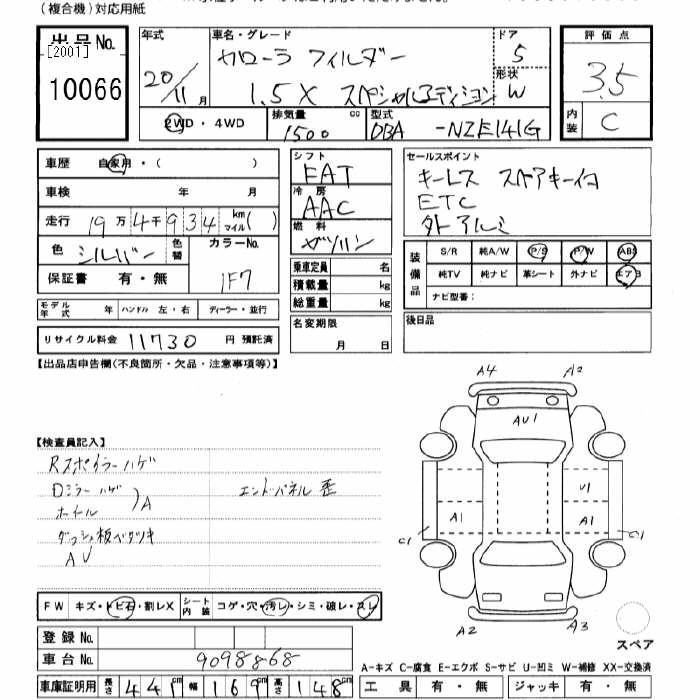 (複合機)対応用紙
出品No. [2001] 10066
年式 20/11月
車名・グレード カローラ フィルダー 1.5X スペシャルエディション
ドア 5
形状 W
評価点 3.5
内装 C
2WD・4WD
排気量 1500 cc
型式 DBA -NZE141G
車歴 自家用・( )
車検 年 月
走行 19万4千934 km マイル( )
色 シルバー 色替 カラーNo. 1F7
保証書 有・無
モデル年式 年 ハンドル 左・右 ディーラー・並行
リサイクル料金 11730 円 預託済
シフト FAT
冷房 AAC
燃料 ガソリン
乗車定員 名
積載量 kg
総重量 kg
名変期限 月 日
セールスポイント
キーレス スペアキー1コ
ETC
外アルミ
装備品 S/R 純A/W P/S P/W ABS
純TV 純ナビ 革シート 外ナビ エアB
ナビ型番:
後日品
【出品店申告欄(不良箇所・欠品・注意事項等)】
A4 A2
AU1
U1
A1 A1
C1 C1
A2 A3
スペア
【検査員記入】
Rスポイラーハゲ
Dミラーハゲ
ホイール )A
エンドパネル歪
ダッシュ板ベタツキ
AU
FW キズ・トビ石・割レX シート内装 コゲ・穴・汚レ・シミ・破レ・スレ
登録No.
車台No. 9098868
A-キズ C-腐食 E-エクボ S-サビ U-凹ミ W-補修 XX-交換済
車庫証明用 長さ 441cm 幅 169cm 高さ 148cm
工具 有・無 ジャッキ 有・無